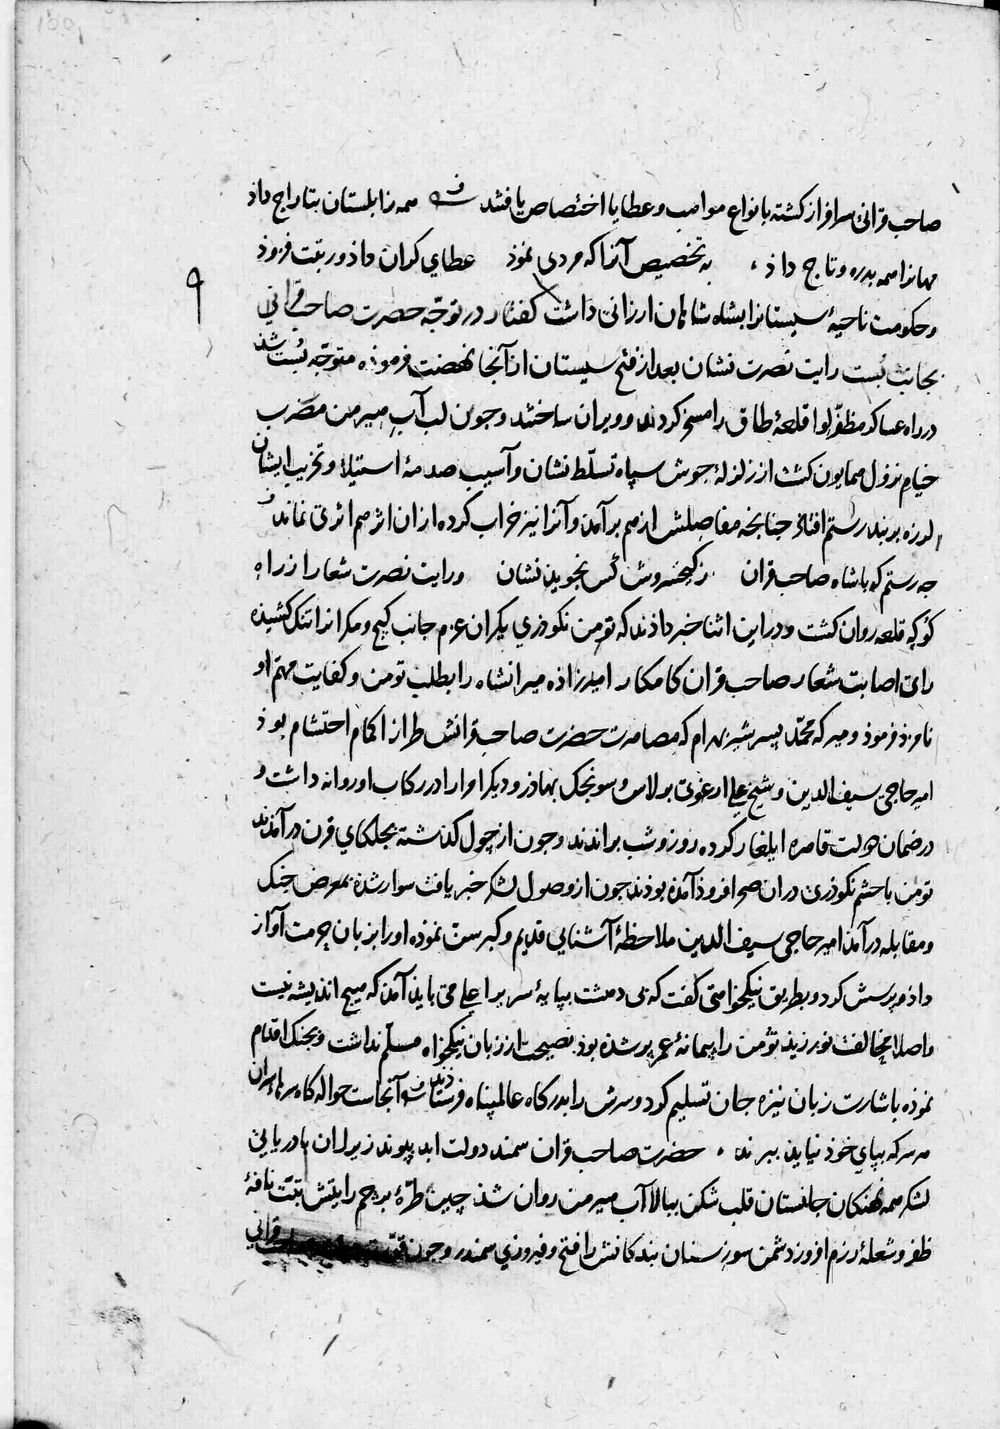 صاحب قرانی سرافراز کشته بانواع مواهب و عطایا اختصاص یافتند همه زابلستان بتاراج داذ
مهانرا همه بدره و تاج داذ بتخصیص آنرا که مردی نموذ عطای کران داذ و رتبت فزوذ
و حکومت ناحیهٔ سیستانرا بشاه شاهان ارزانی داشت کفتار در توجّه حضرت صاحب قرانی
بجانب بُست رایت نصرت نشان بعد از فتح سیستان از آنجا نهضت فرموذه متوجّه بُست شذ
در راه عساکر مظفّر لوا قلعهٔ طاق را مسخر کردند و ویران ساختند و جون لب آب هیرمن مضرب
خیام نزول همایون کشت از زلزلهٔ جوش سپاه تسلّط نشان و آسیب صدمهٔ استیلا و تخریب ایشان
لرزه بر بند رستم افتاذ جنانجه مفاصلش از هم برآمذ و آنرا نیز خراب کرده از ان اثر هم اثری نماند
جه رستم که باشاه صاحب قران ز کیخسروش کس نجوید نشان و رایت نصرت شعار از راه
کوکه قلعه روان کشت و در این اثنا خبر داذند که تومن نکوذری بکران عزم جانب کیج و مکرانرا تنک کشیذه
رای اصابت شعار صاحب قران کامکار امیرزاذه میرانشاه را بطلب تومن و کفایت مهمّ او
نامزذ فرموذ و میرکه محمّد پسر شیر بهرام که مصاهرت حضرت صاحب قرانش طراز اکمام احتشام بوذ
امیر حاجی سیف الدین و شیخ علی ارغوی برلاس و سونجک بهاذر و دیکر امرا را در رکاب او روانه داشت و
در ضمان دولت قاهره ایلغار کرده روز و شب براندند و جون از چول کذشته بجلکای قرن درآمذند
تومن با حشم نکوذری دران صحرا فروذ آمذه بوذند جون از وصول لشکر خبر یافت سوار شذه بمعرض جنک
و مقابله درآمذ امیر حاجی سیف الدین ملاحظهٔ آشنایی قدیم و کبر سن نموذه او را بزبان حرمت آواز
داذ و پرسش کرد و بطریق نیکخواهی کفت که بی دهشت بپایهٔ سریر اعلی می بایذ آمذ که هیچ اندیشه نیست
و اصلا مخالفت نورزیذ تومن را پیمانهٔ عمر پر شذه بوذ نصیحت از زبان نیکخواه مسلّم نداشت و بجنک اقدام
نموذه باشارت زبان نیزه جان تسلیم کرد و سرش را بدرکاه عالمپناه فرستاذند آنجاست حواله کاه سرهای سران
هر سر که بپای خوذ نیایذ ببرند حضرت صاحب قران سمند دولت ابد پیوند زیر ران با دریایی
لشکر همه نهنکان جانستان قلب شکن ببالا آب هیرمن روان شذ چین طرّهٔ پرچم رایتش تبّت نافهٔ
ظفر و شعلهٔ رزم افروز دشمن سوز سنان بندکانش را فتح و فیروزی سمندر و جون قرانی